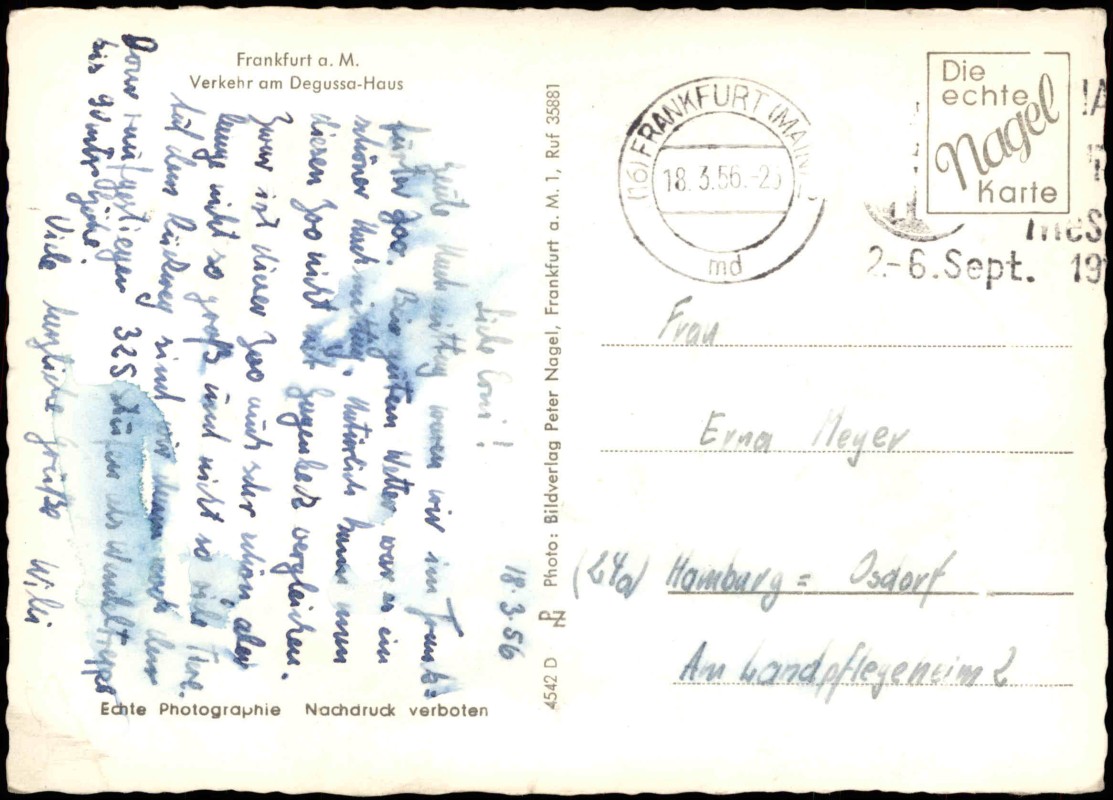 Frankfurt a. M.
Verkehr am Degussa-Haus
18.3.56
Liebe Erni!
Heute Nachmittag waren wir im Frank-
furter Zoo. Bei guten Wetter war es ein
schöner Nachmittag. Natürlich kann man
diesen Zoo nicht mit Hagenbeck vergleichen.
Zwar ist dieser Zoo auch sehr schön aber
lange nicht so groß und nicht so viele Tiere.
Auf dem Rückweg sind wir dann noch den
Dom raufgestiegen 325 Stufen als Wendeltreppe
bis zur Spitze
Viele herzliche Grüße Willi
Echte Photographie Nachdruck verboten
4542 D
PN
Photo: Bildverlag Peter Nagel, Frankfurt a. M. 1, Ruf 35881
(16) FRANKFURT (MAIN)
18.3.56.-2
md
Die
echte
Nagel
Karte
2.-6. Sept. 19
Frau
Erna Meyer
(24a) Hamburg = Osdorf
Am Landpflegeheim 2